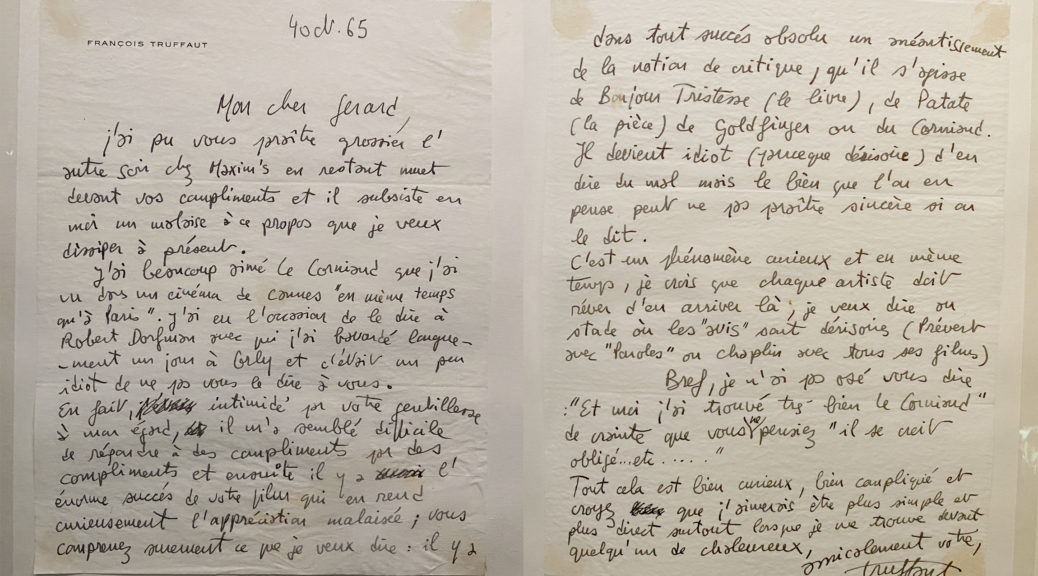 FRANÇOIS TRUFFAUT
4 oct. 65
Mon cher Gerard,
j'ai pu vous paraître grossier l'
autre soir chez Maxim's en restant muet
devant vos compliments et il subsiste en
moi un malaise à ce propos que je veux
dissiper à présent.
J'ai beaucoup aimé Le Corniaud que j'ai
vu dans un cinéma de Cannes "en même temps
qu'à Paris". J'ai eu l'occasion de le dire à
Robert Dorfman avec qui j'ai bavardé longue-
-ment un jour à Orly et c'était un peu
idiot de ne pas vous le dire à vous.
En fait, intimidé par votre gentillesse
à mon égard, il m'a semblé difficile
de répondre à des compliments par des
compliments et ensuite il y a l'
énorme succès de votre film qui en rend
curieusement l'appréciation malaisée ; vous
comprenez surement ce que je veux dire : il y a
dans tout succés absolu un anéantissement
de la notion de critique, qu'il s'agisse
de Bonjour Tristesse (le livre), de Patate
(la pièce) de Goldfinger ou du Corniaud.
Il devient idiot (parceque dérisoire) d'en
dire du mal mais le bien que l'on en
pense peut ne pas paraître sincère si on
le dit.
C'est un phénomène curieux et en même
temps, je crois que chaque artiste doit
rêver d'en arriver là ; je veux dire au
stade où les "avis" sont dérisoires (Prévert
avec "Paroles" ou Chaplin avec tous ses films)
Bref, je n'ai pas osé vous dire
: "Et moi j'ai trouvé très bien le Corniaud"
de crainte que vous ne pensiez "il se croit
obligé...etc....."
Tout cela est bien curieux, bien compliqué et
croyez que j'aimerais être plus simple et
plus direct surtout lorsque je me trouve devant
quelqu'un de chaleureux,
amicalement votre,
truffaut